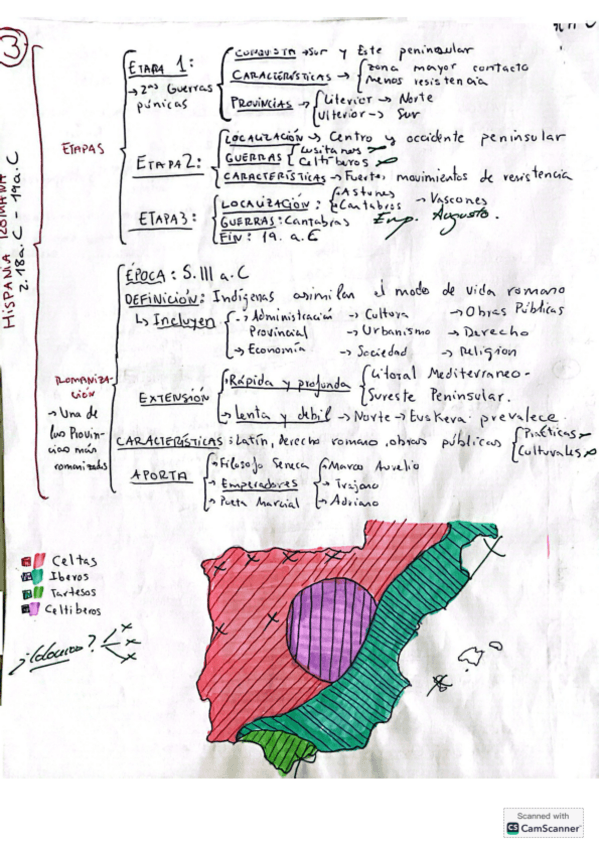 3
HISPANIA ROMANA
2.18a.C - 19a.C
ETAPAS
ETAPA 1:
→ 2ᵃˢ Guerras
púnicas
CONQUISTA → Sur y Este peninsular
CARACTERÍSTICAS → zona mayor contacto
Menos resistencia
PROVINCIAS → Citerior → Norte
Ulterior → Sur
ETAPA 2:
LOCALIZACIÓN → Centro y occidente peninsular
GUERRAS Lusitanos
Celtíberos
CARACTERÍSTICAS → Fuerte, movimientos de resistencia
ETAPA 3:
LOCALIZACIÓN: Astures
Cantabros → Vascones
GUERRAS: Cantabras Emp. Augusto.
FIN: 19. a.C
ROMANIZA-
CIÓN
→ Una de
las Provin-
cias más
romanizadas
ÉPOCA: S.III a.C
DEFINICIÓN: Indígenas asimilan el modo de vida romano
↳ Incluyen → Administración → Cultura → Obras Públicas
Provincial → Urbanismo → Derecho
→ Economía → Sociedad → Religion
EXTENSIÓN
Rápida y profunda Litoral Mediterraneo-
Sureste Peninsular.
→ Lenta y debil → Norte → Euskera prevalece.
CARACTERÍSTICAS: Latín, derecho romano, obras públicas Prácticas
Culturales
APORTA
→ Filosofo Seneca → Marco Aurelio
→ Emperadores → Trajano
→ Poeta Marcial → Adriano
Celtas
Iberos
Tartesos
Celtiberos
Scanned with
CS CamScanner